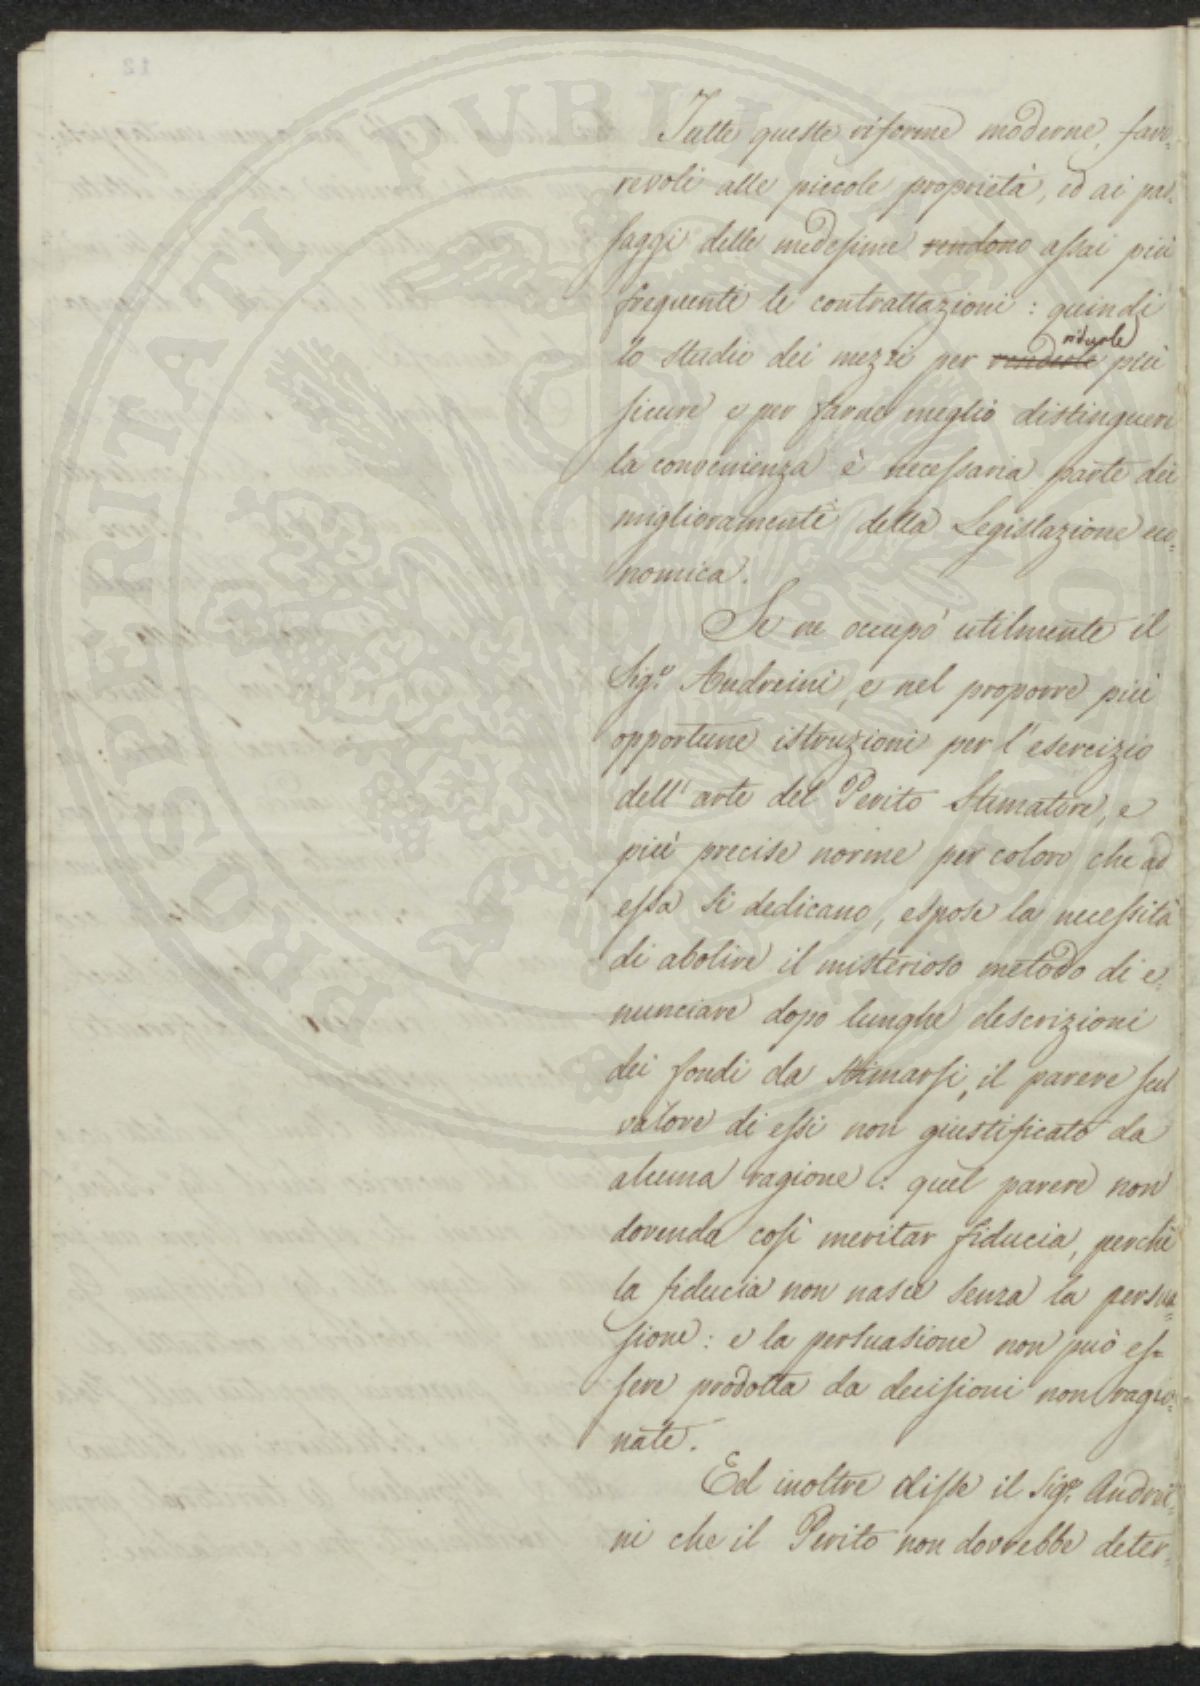 Tutte queste riforme moderne, favo-
revoli alle piccole proprietà, ed ai pas-
saggi delle medesime rendono assai più
frequenti le contrattazioni: quindi
lo studio dei mezzi per renderle ridurle più
sicure e per farne meglio distinguere
la convenienza è necessaria parte dei
miglioramenti della Legislazione eco-
nomica.
Se ne occupò utilmente il
Sig.e Andreini, e nel proporre più
opportune istruzioni per l'esercizio
dell'arte del Perito Stimatore, e
più precise norme per coloro che ad
essa si dedicano, espose la necessità
di abolire il misterioso metodo di e-
nunciare dopo lunghe descrizioni
dei fondi da stimarsi, il parere sul
valore di essi non giustificato da
alcuna ragione: quel parere non
dovendo così meritar fiducia, perchè
la fiducia non nasce senza la persua=
sione: e la persuasione non può es=
sere prodotta da decisioni non ragio=
nate.
Ed inoltre disse il Sig.e Andrei=
ni che il Perito non dovrebbe deter=
PROSPERITATI PUBLICAE
12